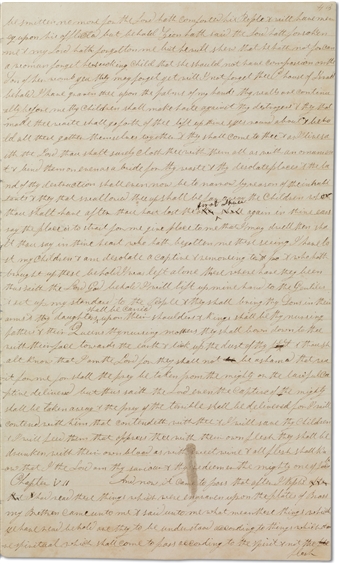 be smitten no more for the Lord hath comforted his People & will have mercy
upon his afflicted but behold Zion hath said the Lord hath forsaken
me & my Lord hath forgotten me but he will shew that he hath not for can
a woman forget her sucking child that she should not have compassion on the
son of her womb yea they may forget yet will I not forget thee O house of Israel
behold I have graven thee upon the palms of my hands thy walls are continu
ally before me thy Children shall make haste against thy destroyers & they that
made thee waste shall go forth of thee lift up thine eyes round about & behold
all these gather themselves together & they shall come to thee & as I live sa
ith the Lord thou shalt surely clothe thee with them all as with an ornament
& bind them on even as a bride for thy waste & thy desolate places & the la
nd of thy destruction shall even now be to narrow by reason of the inhabi
tants & they that swallowed thee up shall be far away the Children whom
thou shalt have after thou hast lost the first shall again in thine ears
say the place is to strait for me give place to me that I may dwell then sha
lt thou say in thine heart who hath begotten me these seeing I have lo
st my Children & am desolate a captive & removeing to & fro & who hath
brought up these behold I was left alone these where have they been
thus saith the Lord God behold I will lift up mine hand to the Gentiles
& set up my standard to the People & they shall bring thy Sons in their
arms & thy daughters shall be carried upon their shoulders & Kings shall be thy nursing
fathers & their Queens thy nursing mothers they shall bow down to thee
with their face towards the earth & lick up the dust of thy feet & thou sh
alt know that I am the Lord for they shall not be ashamed that wa
it for me for shall the prey be taken from the mighty or the lawful ca
ptive delivered but thus saith the Lord even the captives of the mighty
shall be taken away & the prey of the terrible shall be delivered for I will
contend with him that contendeth with thee & I will save thy Children
& I will feed them that oppress thee with their own flesh they shall be
drunken with their own blood as with sweet wine & all flesh shall kn
ow that I the Lord am thy saviour & thy redeemer the mighty one of Jacob
Chapter VII And now it came to pass that after I Nephi
had read these things which were engraven upon the plates of brass
my Brethren came unto me & said unto me what meaneth these things which
ye have read behold are they to be understood according to things which are
spiritual which shall come to pass according to the spirit & not the
flesh